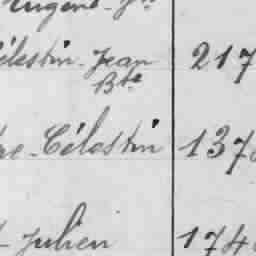 Eugène-Jn
élestin-Jean 217
Bte
re-Célestin 137
Julien 174